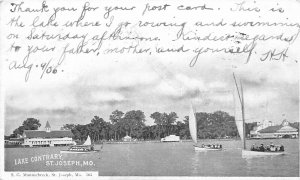 Thank you for your post card. This is
the lake where I go rowing and swimming
on Saturday afternoons. Kindest regards
to your father, mother, and yourself. H.H.
Aug. 4/06.
LAKE CONTRARY
ST. JOSEPH, MO.
S. C. Mannschreck, St. Joseph, Mo.